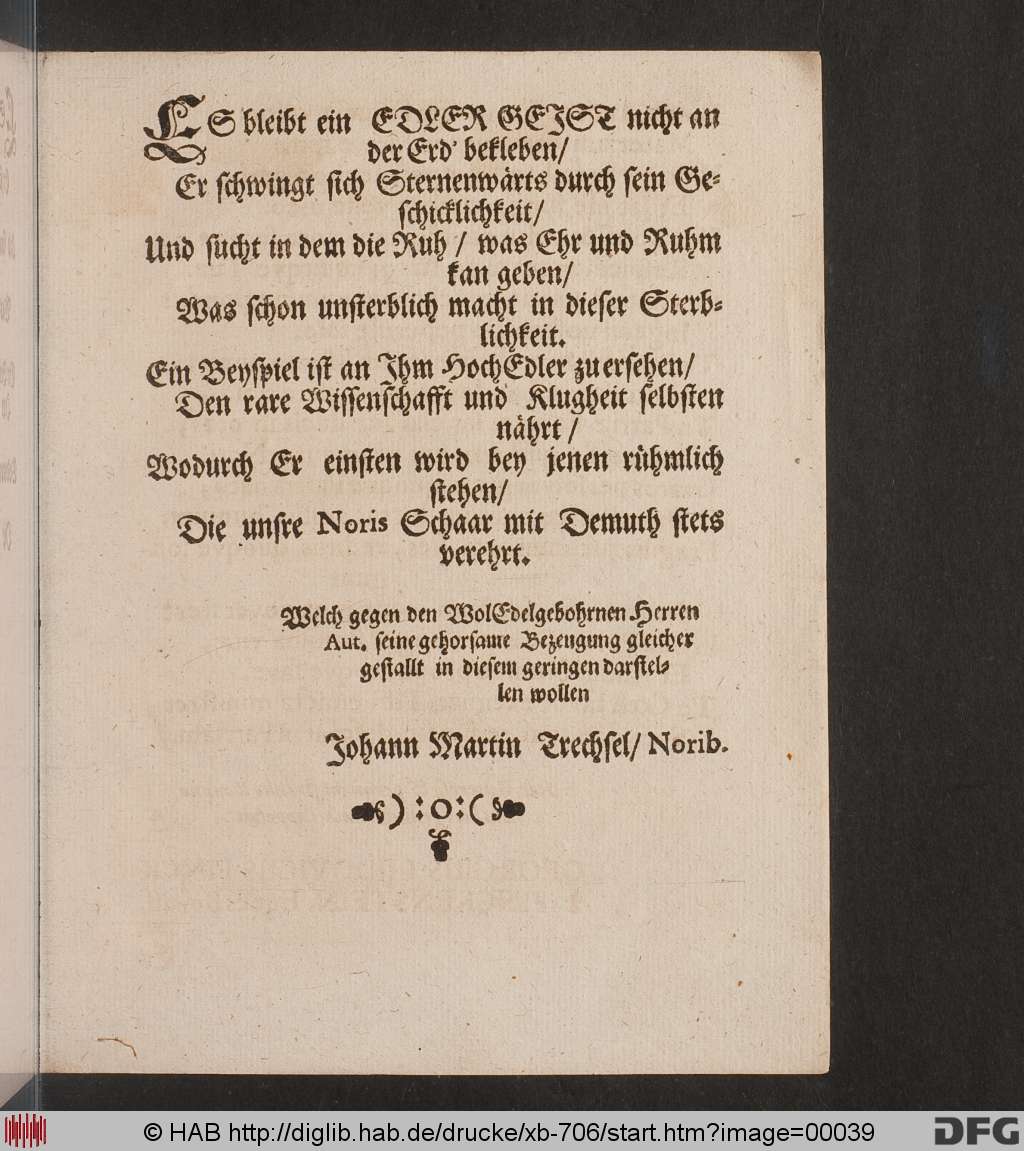 ES bleibt ein EDLER GEIST nicht an
der Erd' bekleben/
Er schwingt sich Sternenwärts durch sein Ge-
schicklichkeit/
Und sucht in dem die Ruh / was Ehr und Ruhm
kan geben/
Was schon unsterblich macht in dieser Sterb-
lichkeit.
Ein Beyspiel ist an Ihm HochEdler zu ersehen/
Den rare Wissenschafft und Klugheit selbsten
nährt /
Wodurch Er einsten wird bey jenen rühmlich
stehen/
Die unsre Noris Schaar mit Demuth stets
verehrt.
Welch gegen den WolEdelgebohrnen Herren
Aut. seine gehorsame Bezeugung gleicher
gestallt in diesem geringen darstel-
len wollen
Johann Martin Trechsel/ Norib.
):o:(
© HAB http://diglib.hab.de/drucke/xb-706/start.htm?image=00039
DFG